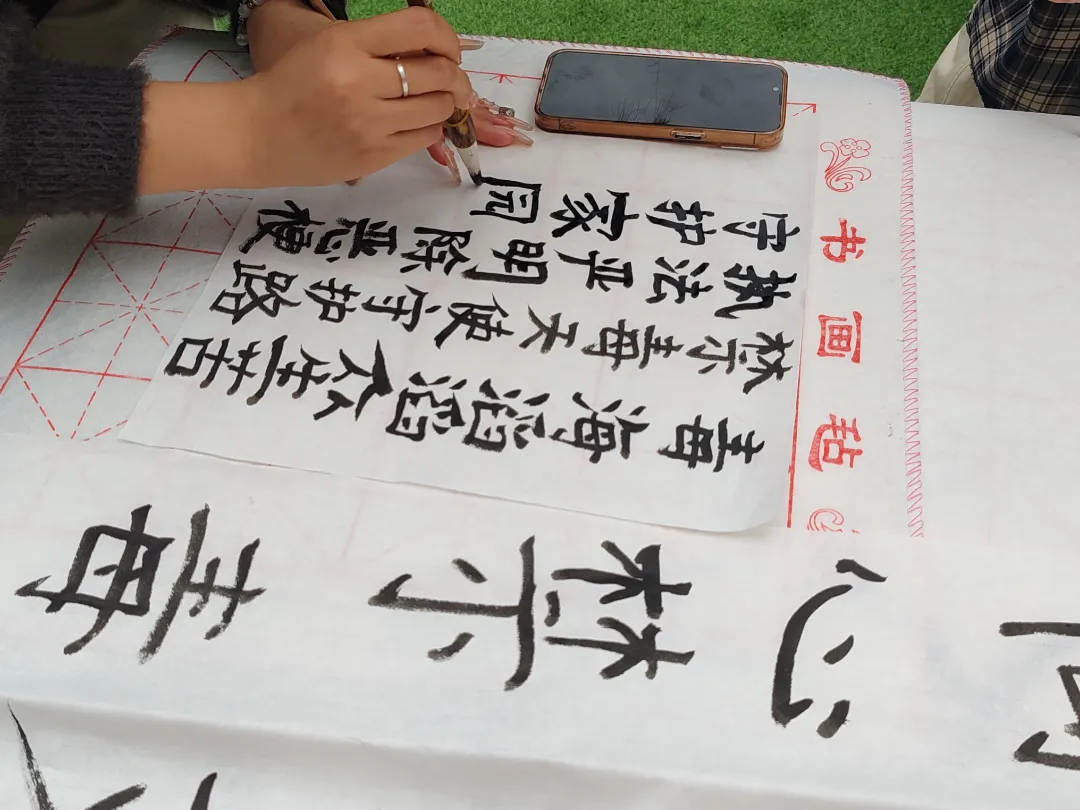 书画毡
毒海滔滔众生苦
禁毒天使守护路
执法严明除恶梗
守护家园
同心禁毒